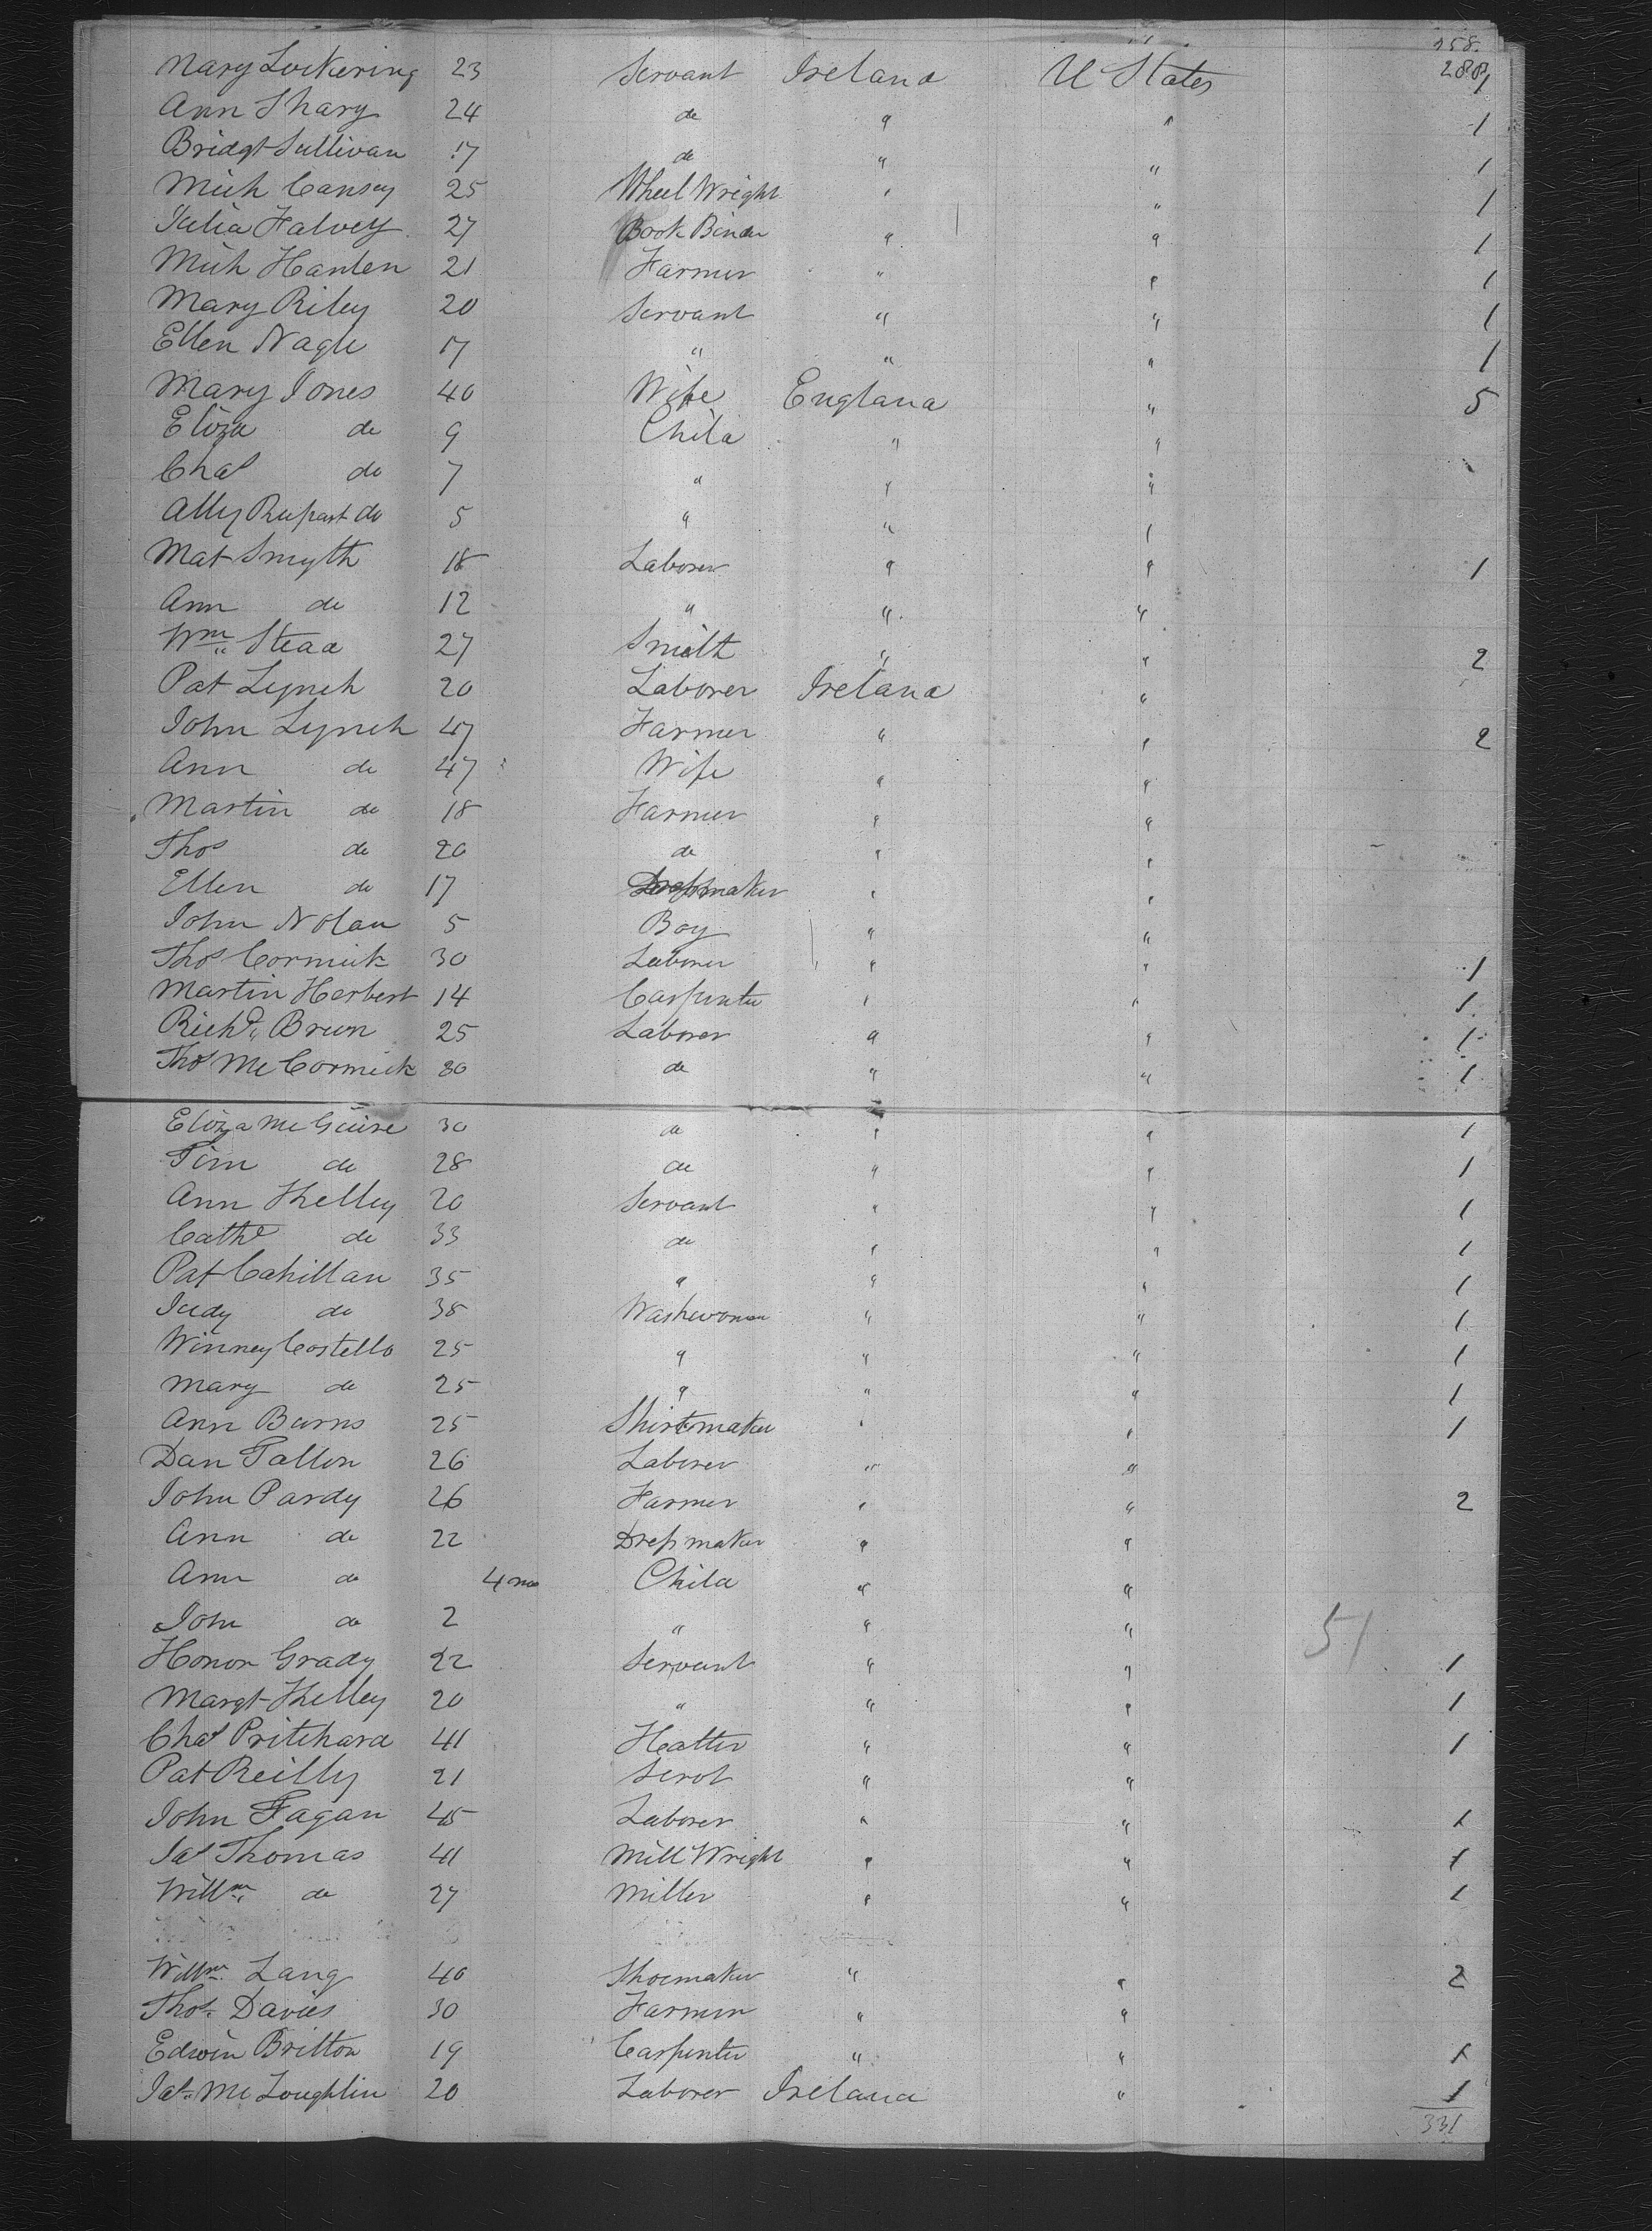 358
Mary Lockering 23 Servant Ireland U States 288 1
Ann Shary 24 do " " 1
Bridgt Sullivan 17 do " " 1
Mich Cansey 25 Wheel Wright " " 1
Julia Falvey 27 Book Binder " " 1
Mich Hanlen 21 Farmer " " 1
Mary Riley 20 Servant " " 1
Ellen Nagle 17 " " " 1
Mary Jones 40 Wife England " 5
Eliza do 9 Child " "
Chas do 7 " " "
Ally Rupart do 5 " " "
Mat Smyth 18 Laborer " " 1
Ann do 12 " " "
Wm Stead 27 Smith " " 2
Pat Lynch 20 Laborer Ireland "
John Lynch 47 Farmer " " 2
Ann do 47 Wife " "
Martin do 18 Farmer " "
Thos do 20 do " "
Ellen do 17 Dressmaker " "
John Nolan 5 Boy " "
Thos Cormick 30 Laborer " " 1
Martin Herbert 14 Carpenter " " 1
Richd Breen 25 Laborer " " 1
Thos McCormick 30 do " " 1
Eliza McGuire 30 do " " 1
Tim do 28 do " " 1
Ann Kelley 20 Servant " " 1
Cathe do 33 do " " 1
Pat Cahillan 35 " " " 1
Judy do 38 Washwoman " " 1
Winney Costello 25 " " " 1
Mary do 25 " " " 1
Ann Burns 25 Shirtmaker " " 1
Dan Fallon 26 Laborer " "
John Pardy 26 Farmer " " 2
Ann do 22 Dressmaker " "
Ann do 4 mos Child " "
John do 2 " " " 51
Honor Grady 22 Servant " " 1
Margt Kelley 20 " " " 1
Chas Pritchard 41 Hatter " " 1
Pat Reilly 21 Servt " "
John Fagan 45 Laborer " " 1
Jas Thomas 41 Mill Wright " " 1
Willm do 27 Miller " " 1
Willm Lang 40 Shoemaker " " 2
Thos Davies 30 Farmer " "
Edwin Britton 19 Carpenter " " 1
Jas McLoughlin 20 Laborer Ireland " 1
331